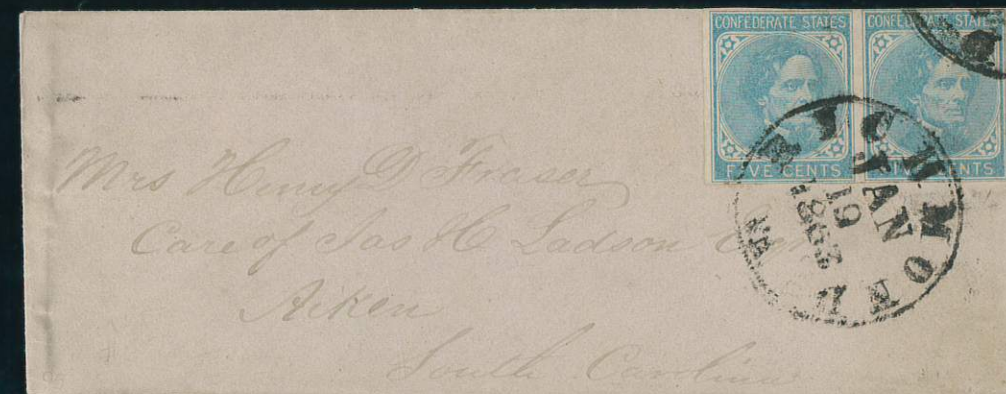 CONFEDERATE STATES CONFEDERATE STATES
FIVE CENTS FIVE CENTS
RICHMOND VA
JAN
19
1863
Mrs Henry D Fraser
Care of Jas H Ladson Esqr
Aiken
South Carolina